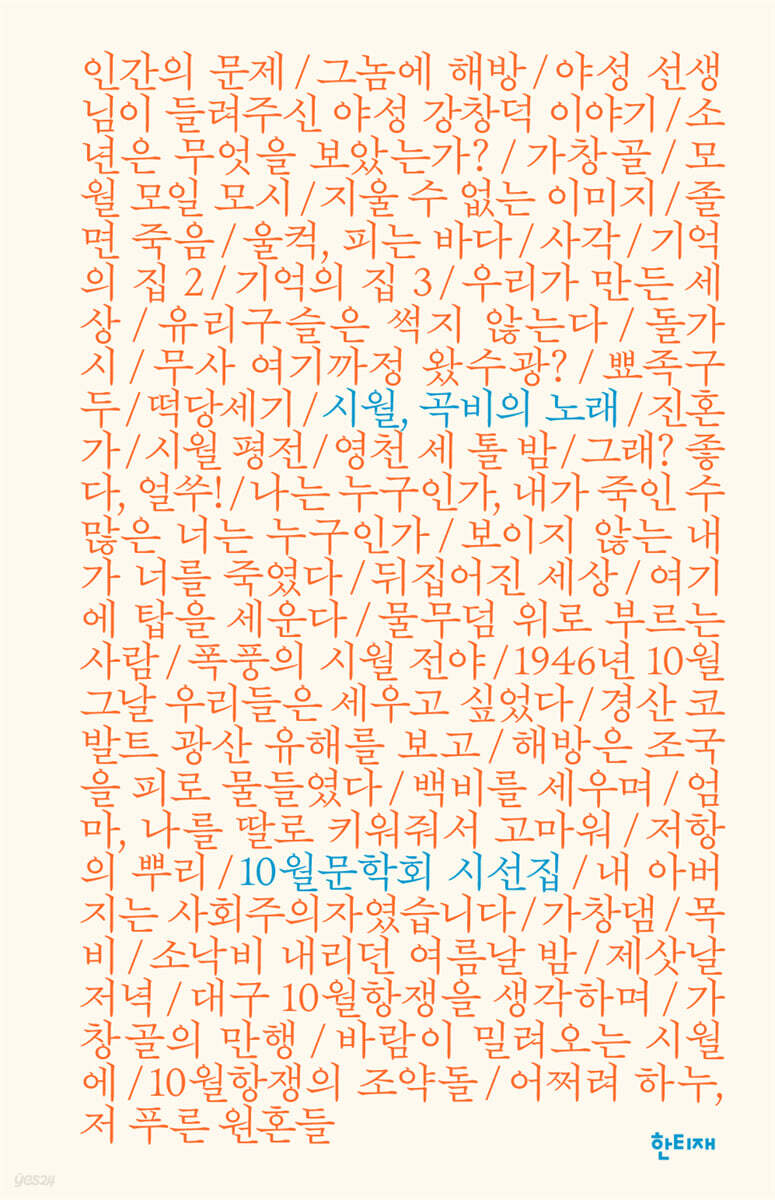 인간의 문제/그놈에 해방/야성 선생
님이 들려주신 야성 강창덕 이야기/소
년은 무엇을 보았는가?/가창골/모
월 모일 모시/지울 수 없는 이미지/졸
면 죽음/울컥, 피는 바다/사각/기억
의 집 2/기억의 집 3/우리가 만든 세
상/유리구슬은 썩지 않는다/돌가
시/무사 여기까정 왔수광?/뾰족구
두/떡당세기/시월, 곡비의 노래/진혼
가/시월 평전/영천 세 톨 밤/그래? 좋
다, 얼쑤!/나는 누구인가, 내가 죽인 수
많은 너는 누구인가/보이지 않는 내
가 너를 죽였다/뒤집어진 세상/여기
에 탑을 세운다/물무덤 위로 부르는
사람/폭풍의 시월 전야/1946년 10월
그날 우리들은 세우고 싶었다/경산 코
발트 광산 유해를 보고/해방은 조국
을 피로 물들였다/백비를 세우며/엄
마, 나를 딸로 키워줘서 고마워/저항
의 뿌리/10월문학회 시선집/내 아버
지는 사회주의자였습니다/가창댐/목
비/소낙비 내리던 여름날 밤/제삿날
저녁/대구 10월항쟁을 생각하며/가
창골의 만행/바람이 밀려오는 시월
에/10월항쟁의 조약돌/어쩌려 하누,
저 푸른 원혼들
한티재
yes24